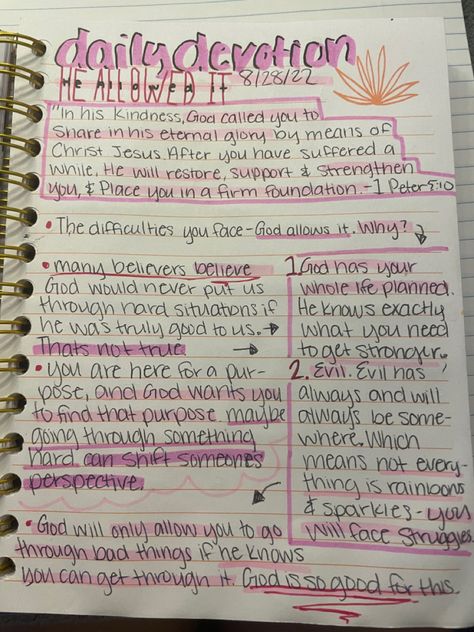 daily devotion
HE ALLOWED IT 8/28/22
"In his kindness, God called you to
share in his eternal glory by means of
Christ Jesus. After you have suffered a
while, He will restore, support & strengthen
you, & Place you in a firm foundation. - 1 Peter 5:10
• The difficulties you face - God allows it. Why?
• many believers believe
God would never put us
through hard situations if
he was truly good to us. →
Thats not true. →
• you are here for a pur-
pose, and God wants you
to find that purpose. maybe
going through something
hard can shift someones
perspective.
1. God has your
whole life planned.
He knows exactly
what you need
to get stronger.
2. Evil. Evil has
always and will
always be some-
where. Which
means not every-
thing is rainbows
& sparkles - you
will face struggles.
• God will only allow you to go
through bad things if he knows
you can get through it. God is so good for this.